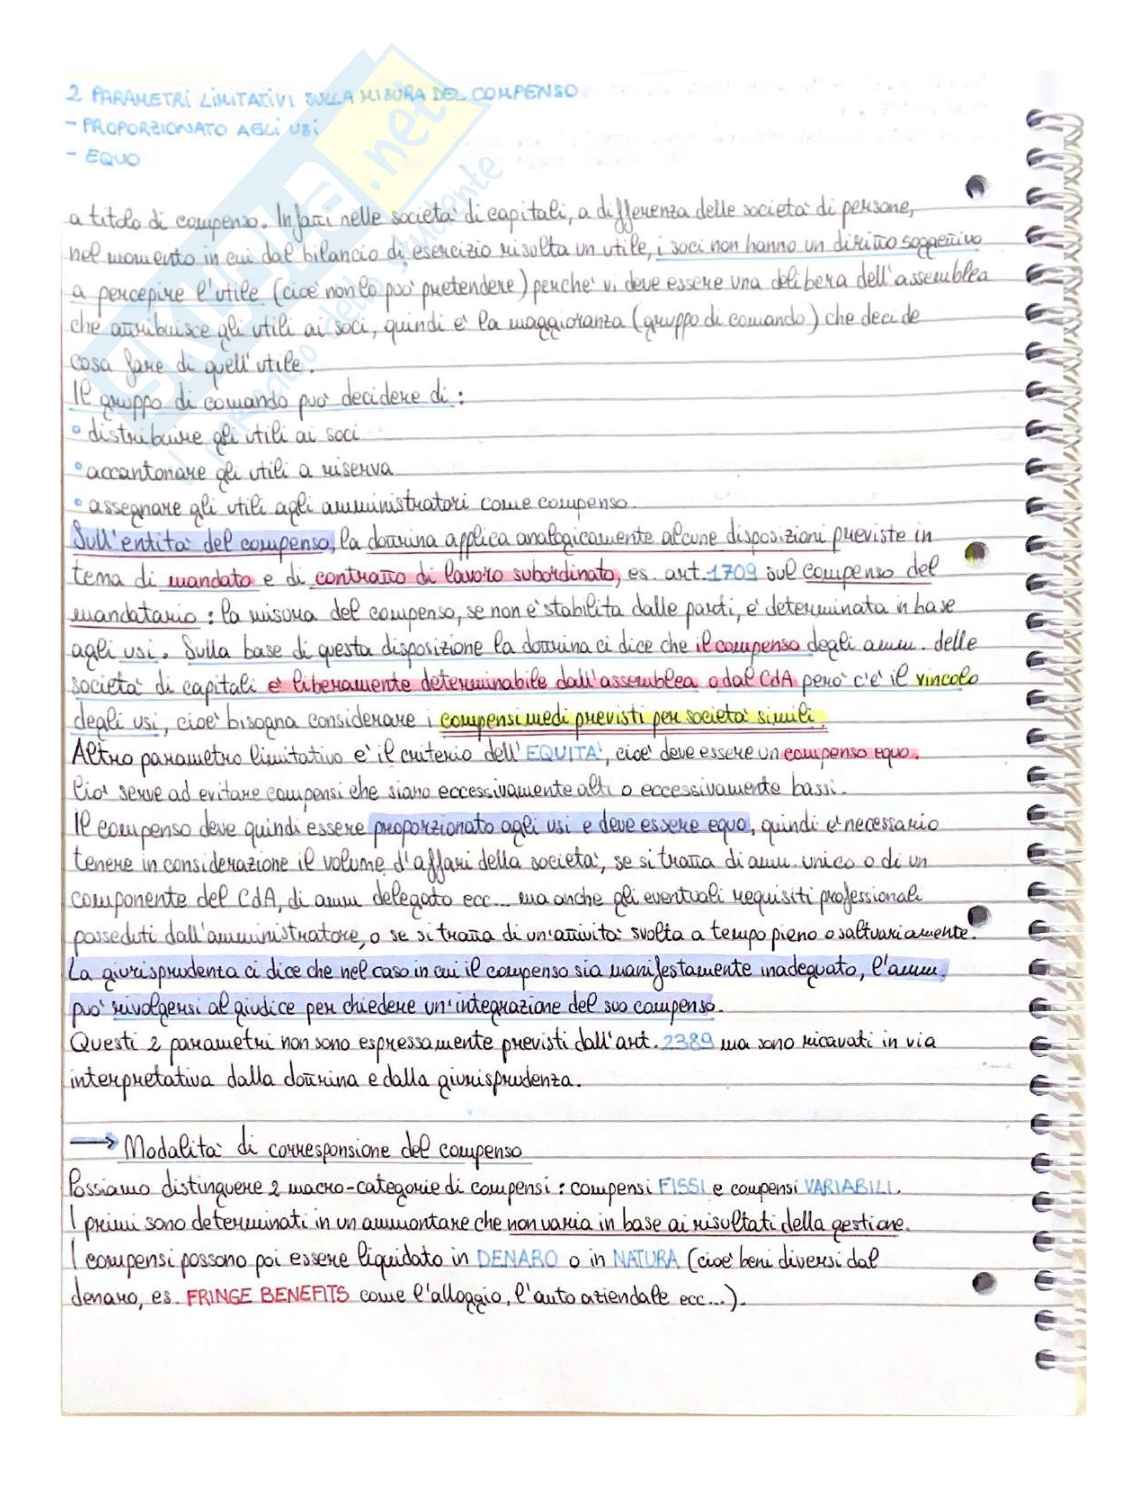 2 PARAMETRI LIMITATIVI SULLA MISURA DEL COMPENSO
- PROPORZIONATO AGLI USI
- EQUO
a titolo di compenso. Infatti nelle società di capitali, a differenza delle società di persone,
nel momento in cui dal bilancio di esercizio risulta un utile, i soci non hanno un diritto soggettivo
a percepire l'utile (cioè non lo può pretendere) perchè vi deve essere una delibera dell'assemblea
che attribuisce gli utili ai soci, quindi è la maggioranza (gruppo di comando) che decide
cosa fare di quell'utile.
Il gruppo di comando può decidere di:
• distribuire gli utili ai soci
• accantonare gli utili a riserva
• assegnare gli utili agli amministratori come compenso.
Sull'entità del compenso, la dottrina applica analogicamente alcune disposizioni previste in
tema di mandato e di contratto di lavoro subordinato, es. art. 1709 sul compenso del
mandatario: la misura del compenso, se non è stabilita dalle parti, è determinata in base
agli usi. Sulla base di questa disposizione la dottrina ci dice che il compenso degli amm. delle
società di capitali è liberamente determinabile dall'assemblea o dal CdA però c'è il vincolo
degli usi, cioè bisogna considerare i compensi medi previsti per società simili.
Altro parametro limitativo è il criterio dell'EQUITA', cioè deve essere un compenso equo.
Ciò serve ad evitare compensi che siano eccessivamente alti o eccessivamente bassi.
Il compenso deve quindi essere proporzionato agli usi e deve essere equo, quindi è necessario
tenere in considerazione il volume d'affari della società, se si tratta di amm. unico o di un
componente del CdA, di amm delegato ecc... ma anche gli eventuali requisiti professionali
posseduti dall'amministratore, o se si tratta di un'attività svolta a tempo pieno o saltuariamente.
La giurisprudenza ci dice che nel caso in cui il compenso sia manifestamente inadeguato, l'amm.
può rivolgersi al giudice per chiedere un'integrazione del suo compenso.
Questi 2 parametri non sono espressamente previsti dall'art. 2389 ma sono ricavati in via
interpretativa dalla dottrina e dalla giurisprudenza.
→ Modalità di corresponsione del compenso
Possiamo distinguere 2 macro-categorie di compensi: compensi FISSI e compensi VARIABILI.
I primi sono determinati in un ammontare che non varia in base ai risultati della gestione.
I compensi possono poi essere liquidato in DENARO o in NATURA (cioè beni diversi dal
denaro, es. FRINGE BENEFITS come l'alloggio, l'auto aziendale ecc...).